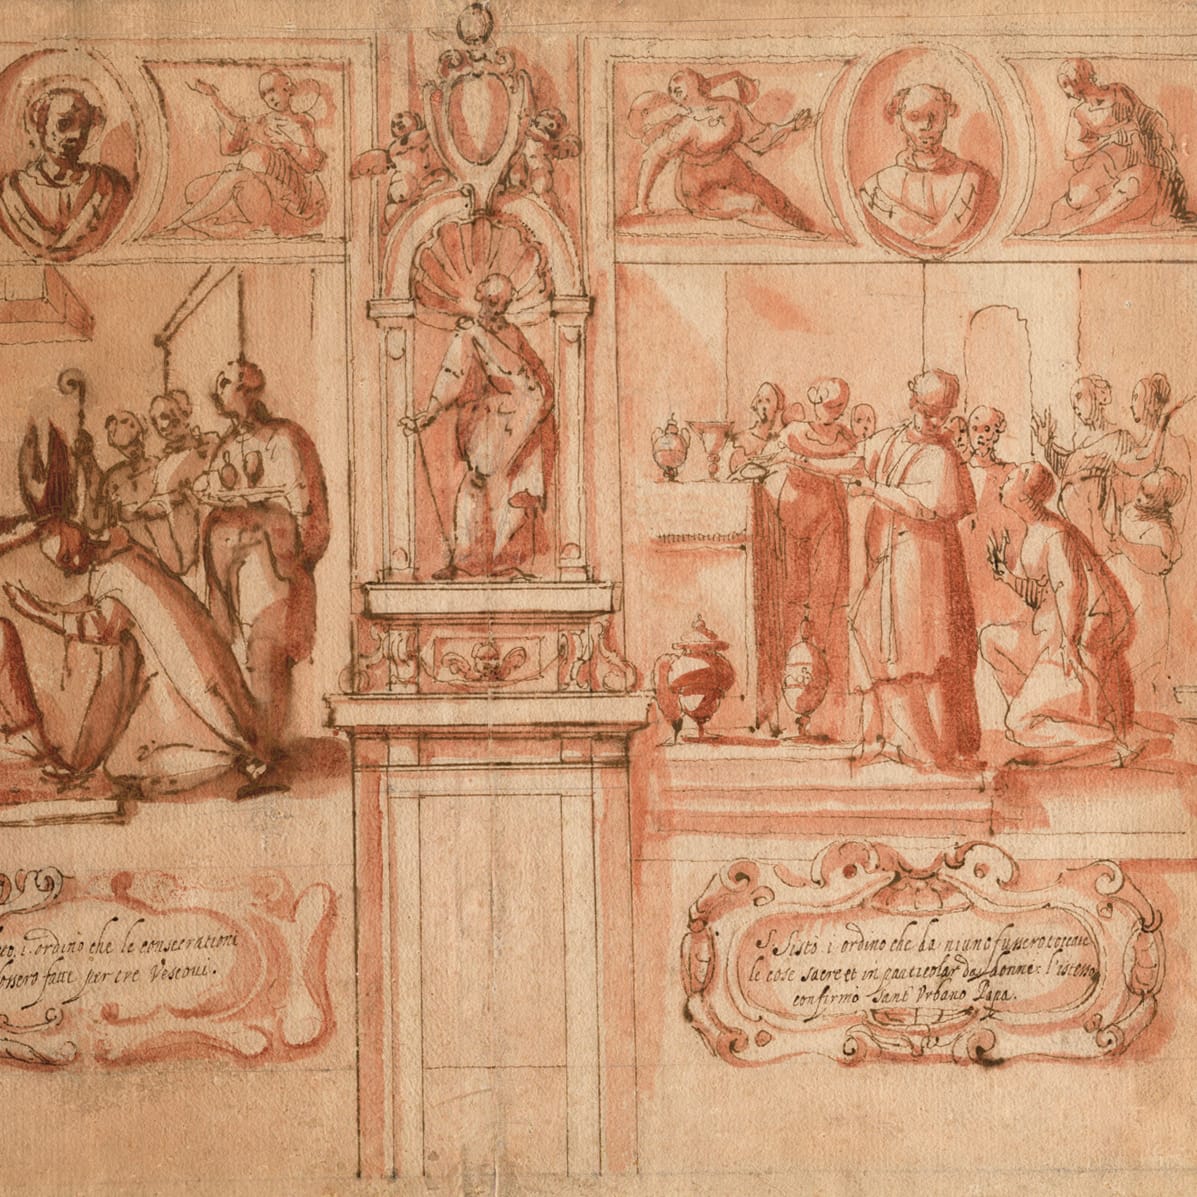 i. ordinò che le consecrationi
fossero fatte per tre Vescovi.
S. Sisto i ordino che da niuno fussero toccate
le cose sacre et in particolar da donne: l'istesso
confirmò Sant Vrbano Papa.